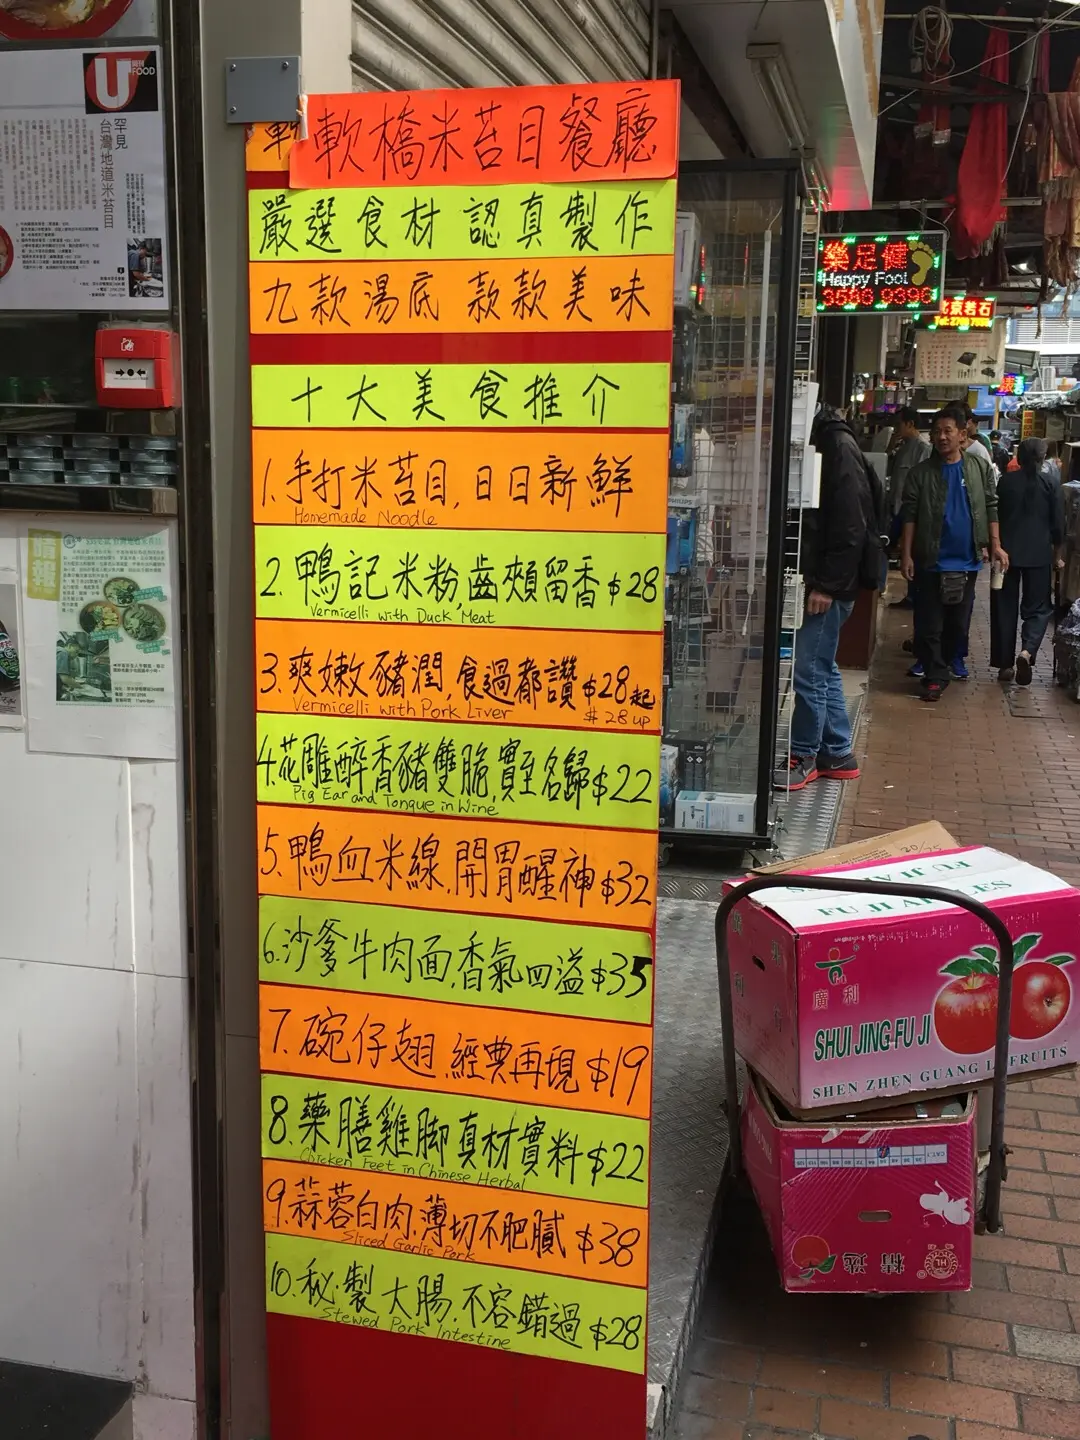 軟橋米苔目餐廳
嚴選食材 認真製作
九款湯底 款款美味
十大美食推介
1.手打米苔目,日日新鮮
Homemade Noodle
2.鴨記米粉,齒頰留香$28
Vermicelli with Duck Meat
3.爽嫩豬潤,食過都讚$28起
Vermicelli with Pork Liver
$28 up
4.花雕醉香豬雙脆,實至名歸$22
Pig Ear and Tongue in Wine
5.鴨血米線,開胃醒神$32
6.沙爹牛肉面,香氣四溢$35
7.碗仔翅,經典再現$19
8.藥膳雞脚真材實料$22
Chicken Feet in Chinese Herbal
9.蒜蓉白肉,薄切不肥膩$38
Sliced Garlic Pork
10.秘製大腸,不容錯過$28
Stewed Pork Intestine
U
FOOD
罕見
台灣地道米苔目
樂足健
Happy Foot
北京若石
FU JI
廣利
SHUI JING FU JI
SHEN ZHEN GUANG LI FRUITS
精選